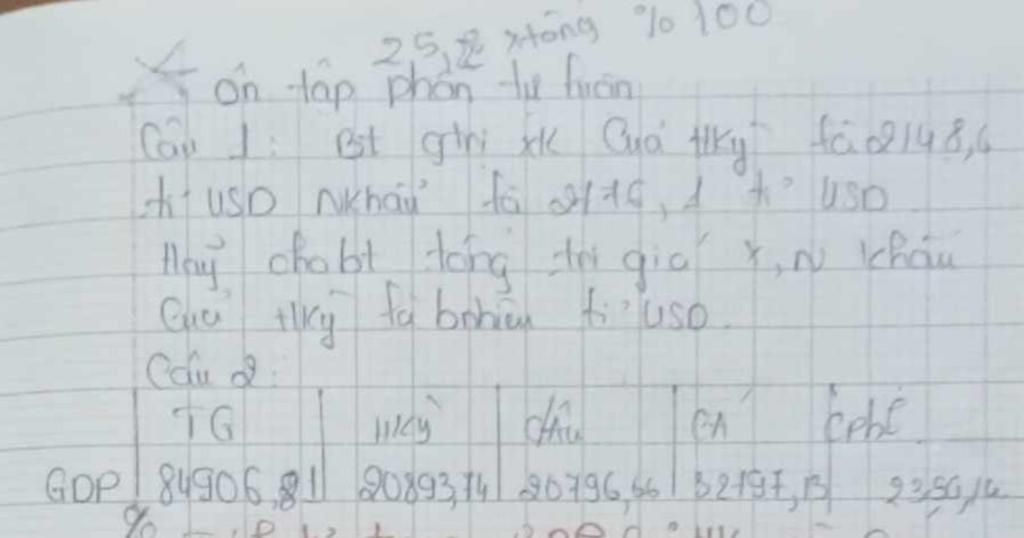 25,2 xtổng % 100
ôn tập phần tự luận
Câu 1: Bt gtri xk Của Hkỳ là 2148,6
tỉ USD Nkhẩu là
tỉ USD
Hãy cho bt tổng trị giá X, N khẩu
Của Hkỳ là bnhiêu tỉ USD.
Câu 2:
TG Hkỳ châu CÁ Cphi
GDP 84906,81 20893,74 20796,66 32797,13
%